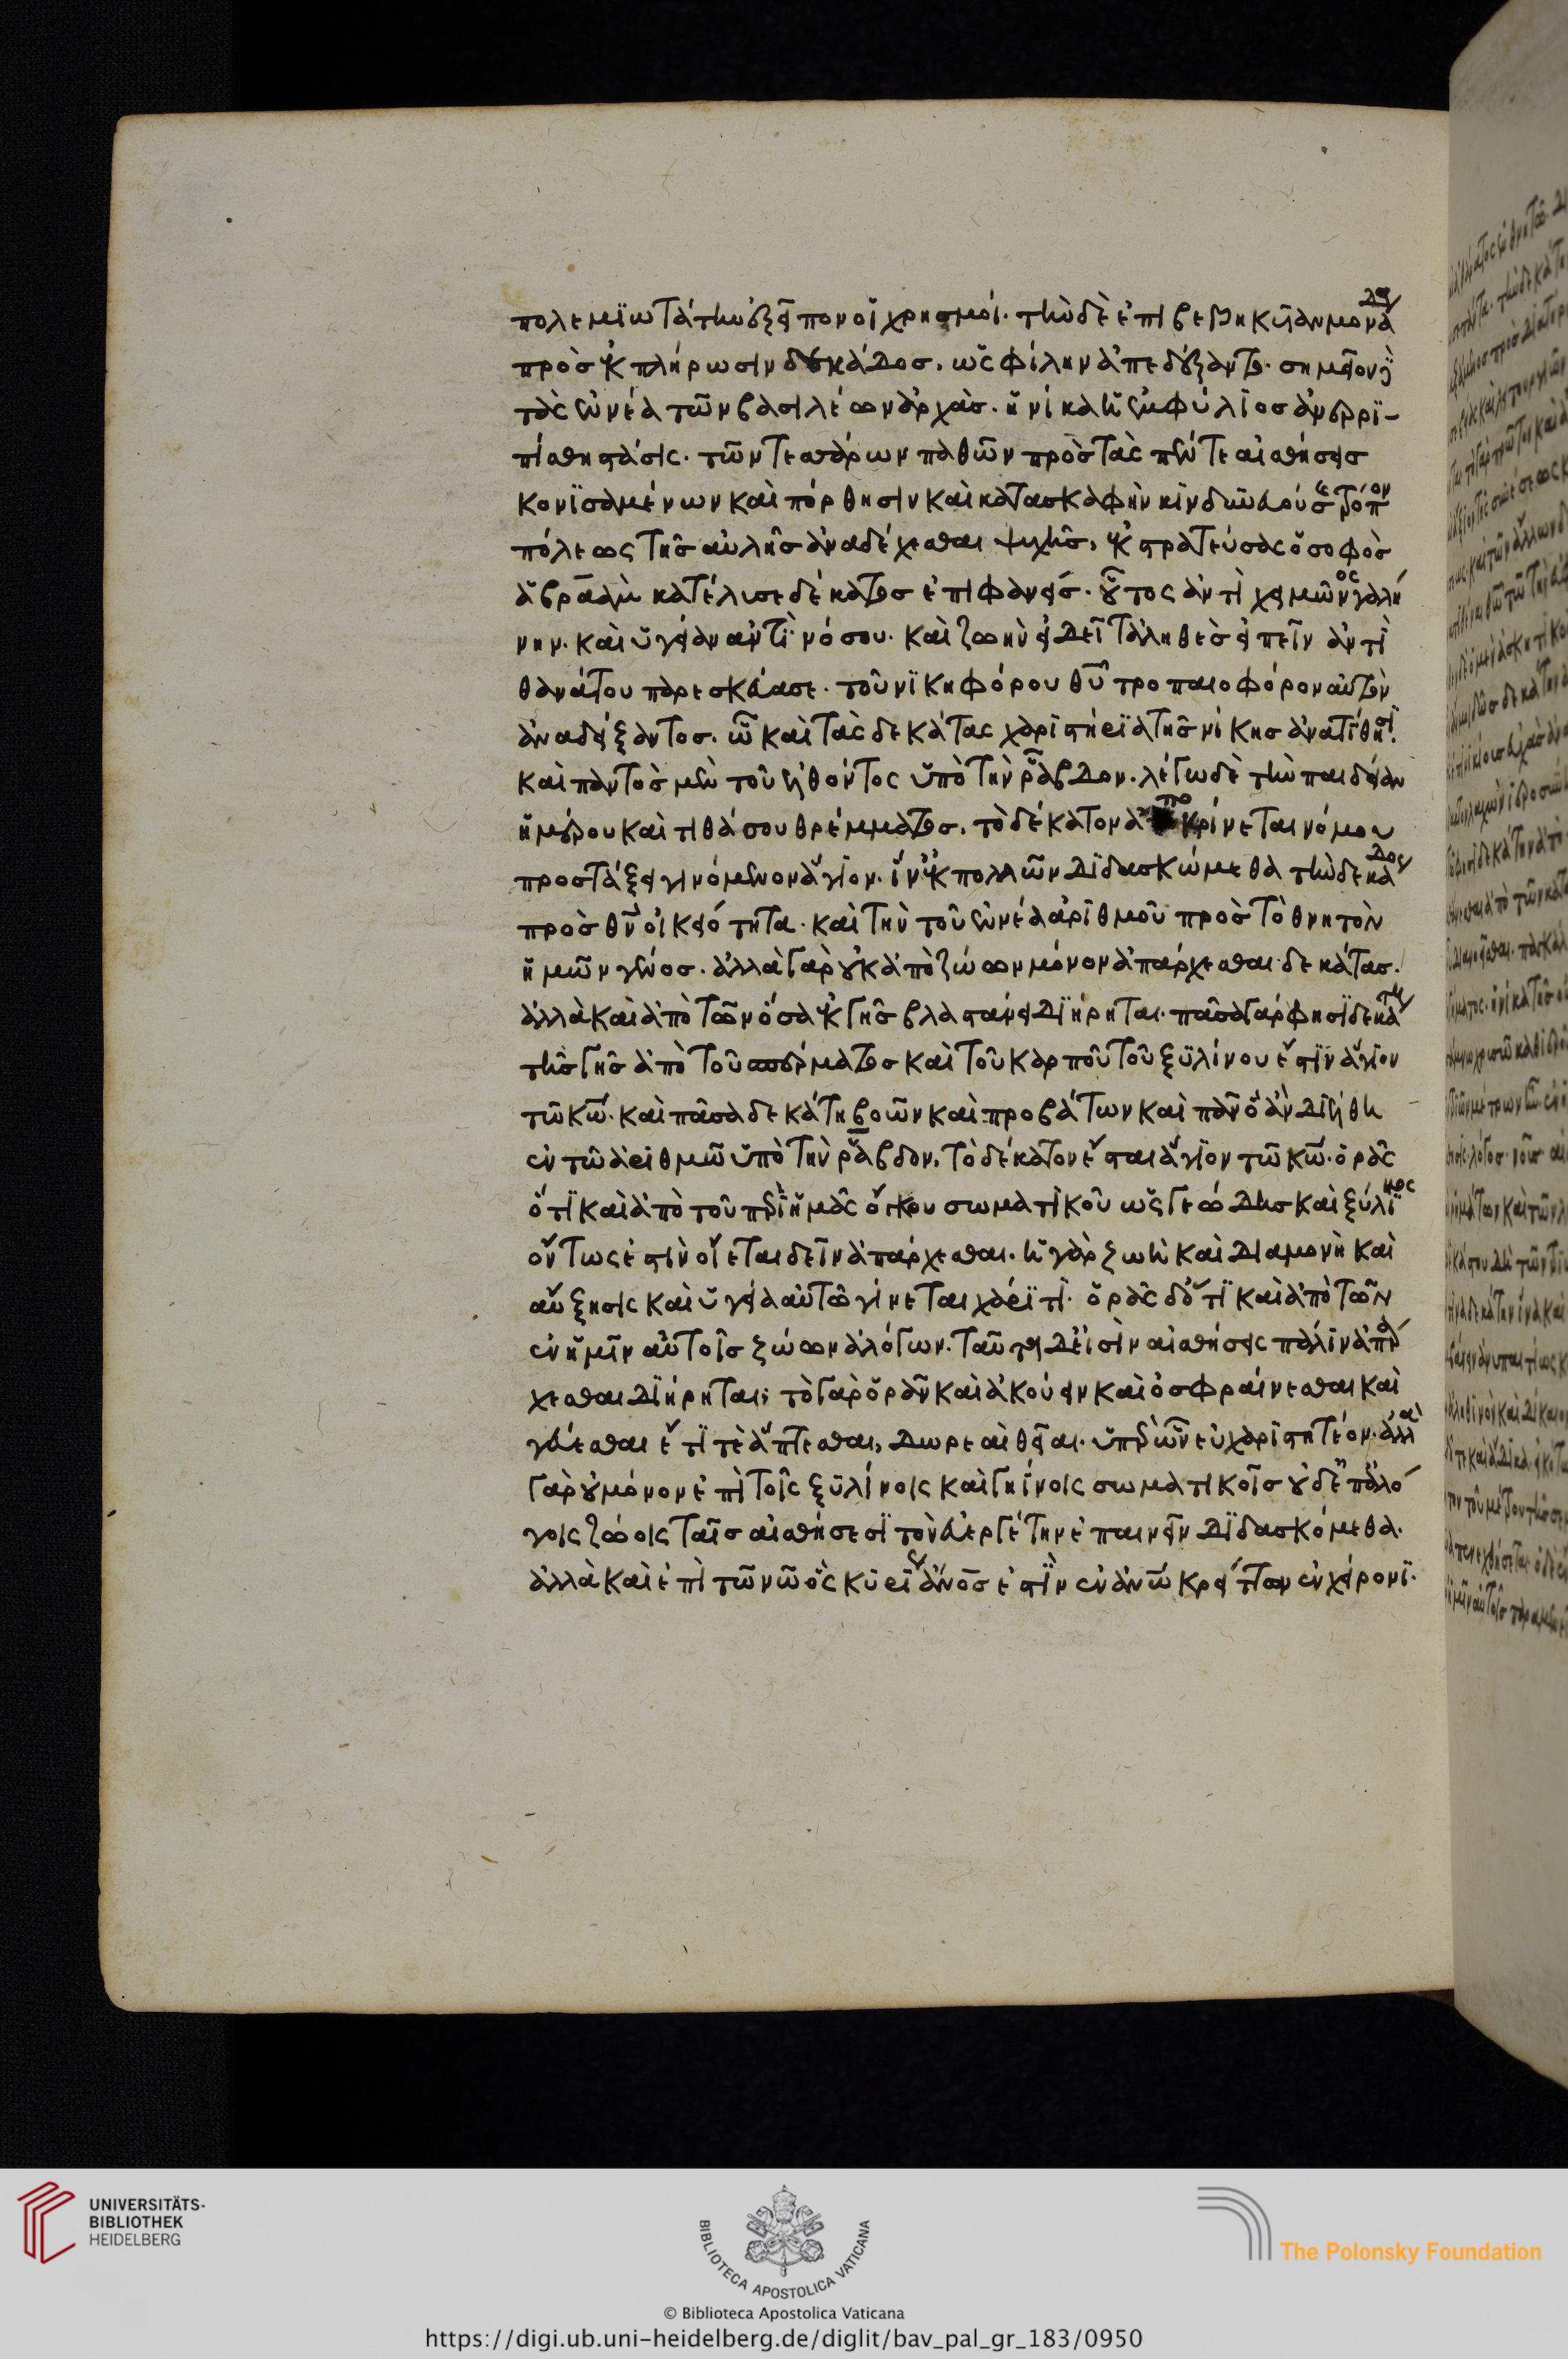 πολεμιωτάτην ἐξεῖπον οἱ χρησμοί. τὴν δὲ ἐπιβεβηκυῖαν μονάδα
πρὸς ἐκπλήρωσιν δεκάδος, ὡς φίλην ἀπεδέξαντο. σημεῖον δὲ
τὰς ἐννέα τῶν βασιλέων ἀρχὰς. ἡνίκα ἡ ἐμφύλιος ἀνερρι-
πίσθη στάσις. τῶν τεσσάρων παθῶν πρὸς τὰς πέντε αἰσθήσεις
κονισαμένων καὶ πόρθησιν καὶ κατασκαφὴν κινδυνευούσης τρόπον
πόλεως τῆς αὐλῆς ἀναδέχεσθαι ψυχῆς, ἐκστρατεύσας ὁ σοφὸς
ἀβραὰμ κατέλυσε δέκατος ἐπιφανείς. οὗτος ἀντὶ χειμῶνος γαλή
νην. καὶ ὑγείαν ἀντὶ νόσου. καὶ ζωὴν εἰ δεῖ τἀληθὲς εἰπεῖν ἀντὶ
θανάτου παρεσκεύασε. τοῦ νικηφόρου θυ τροπαιοφόρον αὐτὸν
ἀναδείξαντος. ᾧ καὶ τὰς δεκάτας χαριστήρια τῆς νίκης ἀνατίθησι.
καὶ παντὸς μὲν τοῦ ἐλθόντος ὑπὸ τὴν ῥάβδον. λέγω δὲ τὴν παιδείαν
ἡμέρου καὶ τιθάσου θρέμματος, τὸ δέκατον ἀποκρίνεται νόμου
προστάξει γινόμενον ἅγιον. ἵν' ἐκ πολλῶν διδασκώμεθα τὴν δεκάδος
πρὸς θν οἰκειότητα. καὶ τὴν τοῦ ἐννέα ἀριθμοῦ πρὸς τὸ θνητὸν
ἡμῶν γένος. ἀλλὰ γὰρ οὐκ ἀπὸ ζώων μόνον ἀπάρχεσθαι δεκάτας.
ἀλλὰ καὶ ἀπὸ τῶν ὅσα ἐκ γῆς βλαστάνει διήρηται. πᾶσα γάρ φησι δεκάτη
τῆς γῆς ἀπὸ τοῦ σπέρματος καὶ τοῦ καρποῦ τοῦ ξυλίνου ἔστιν ἅγιον
τῶ κω. καὶ πᾶσα δεκάτη βοῶν καὶ προβάτων καὶ πᾶν ὃ ἂν διέλθη
ἐν τῶ ἀριθμῶ ὑπὸ τὴν ῥάβδον, τὸ δέκατον ἔσται ἅγιον τῶ κω. ὁρᾶς
ὅτι καὶ ἀπὸ τοῦ περὶ ἡμᾶς ὄγκου σωματικοῦ ὡς γεώδης καὶ ξύλινος
ὄντως ἐστὶν οἴεται δεῖν ἀπάρχεσθαι. ἡ γὰρ ζωὴ καὶ διαμονὴ καὶ
αὔξησις καὶ ὑγεία αὐτῶ γίνεται χάριτι. ὁρᾶς δ' ὅτι καὶ ἀπὸ τῶν
ἐν ἡμῖν αὐτοῖς ζώων ἀλόγων. ταῦτα δέ εἰσιν αἰσθήσεις πάλιν ἀπάρ
χεσθαι διήρηται; τὸ γὰρ ὁρᾶν καὶ ἀκούειν καὶ ὀσφραίνεσθαι καὶ
γεύεσθαι ἔτι τε ἅπτεσθαι, δωρεαὶ θεῖαι. ὑπὲρ ὧν εὐχαριστητέον. ἀλλὰ
γὰρ οὐ μόνον ἐπὶ τοῖς ξυλίνοις καὶ γηΐνοις σωματικοῖς οὐδ' ἐπ' ἀλό
γοις ζώοις ταῖς αἰσθήσεσι τὸν εὐεργέτην ἐπαινεῖν διδασκόμεθα.
ἀλλὰ καὶ ἐπὶ τῶ νῶ ὃς κυρίως ἄνος ἐστὶν ἐν ἀνω κρείττων ἐν χείρονι.
UNIVERSITÄTS-
BIBLIOTHEK
HEIDELBERG
BIBLIOTECA APOSTOLICA VATICANA
The Polonsky Foundation
© Biblioteca Apostolica Vaticana
https://digi.ub.uni-heidelberg.de/diglit/bav_pal_gr_183/0950